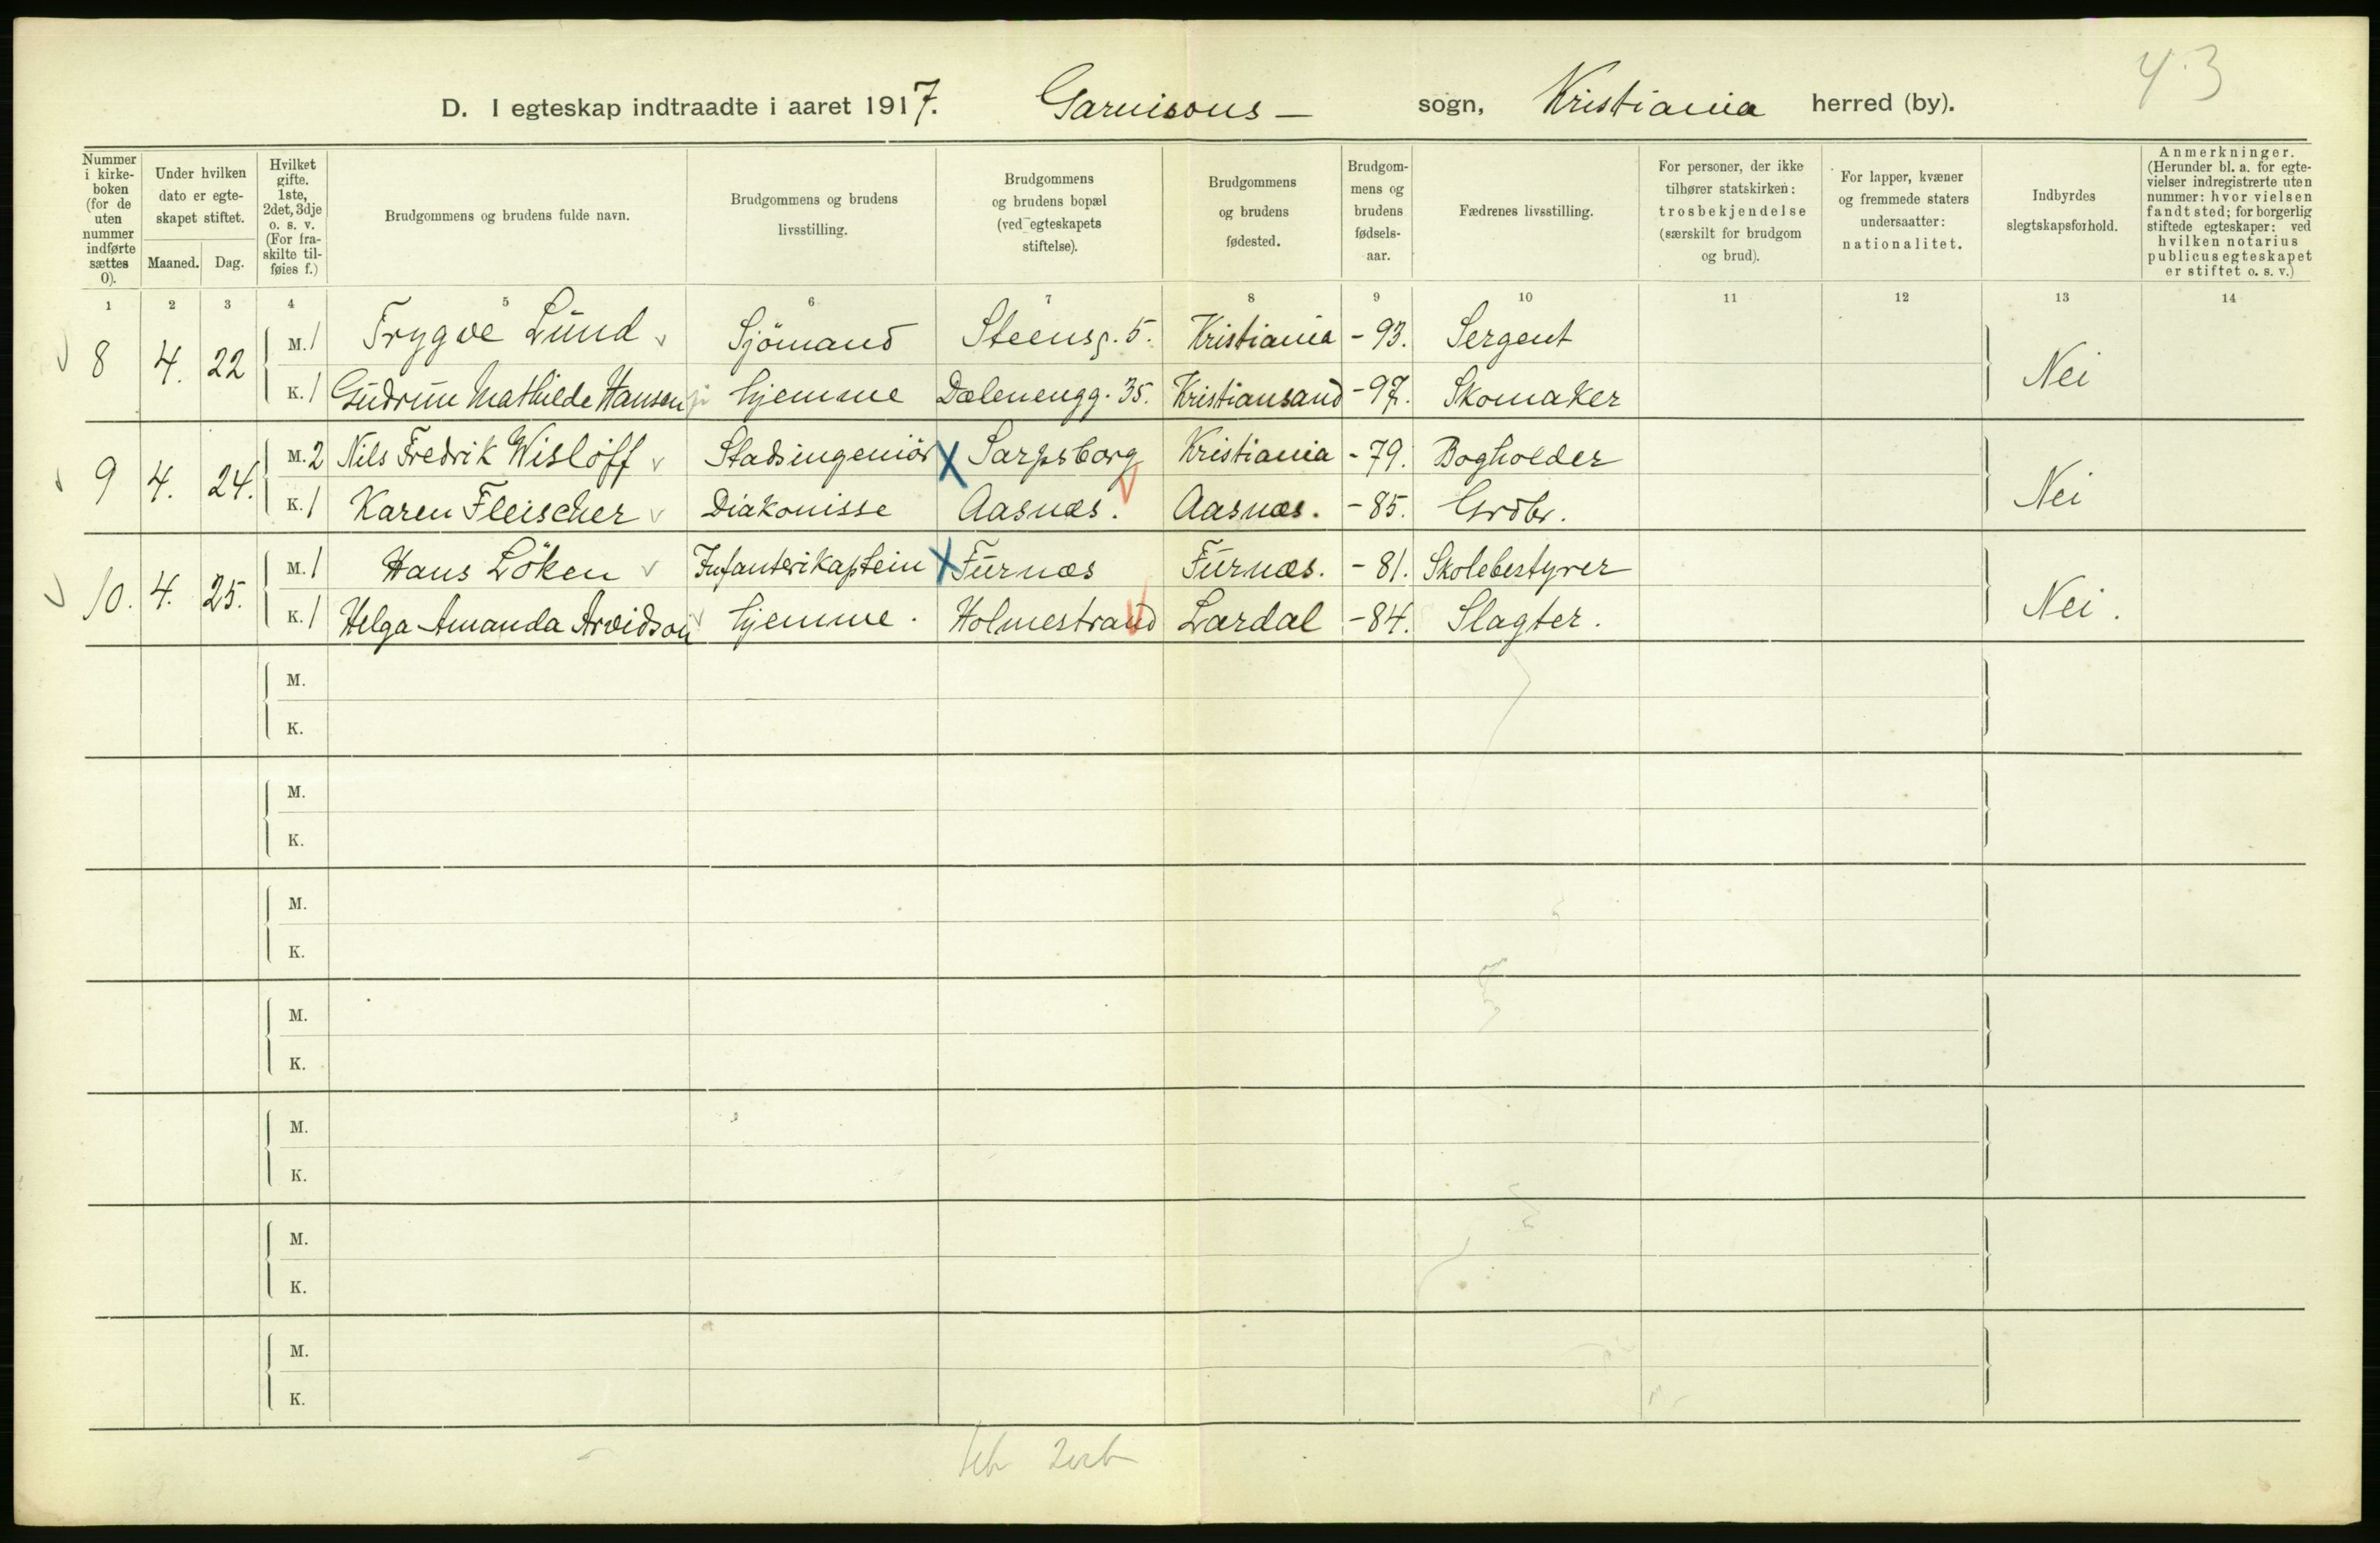 43
D. I egteskap indtraadte i aaret 1917. Garnisons — sogn, Kristiania herred (by).
Nummer i kirke- boken (for de uten nummer indførte sættes 0).
Under hvilken dato er egte- skapet stiftet.
Maaned. Dag.
Hvilket gifte. 1ste, 2det, 3dje o. s. v. (For fra- skilte til- føies f.)
Brudgommens og brudens fulde navn.
Brudgommens og brudens livsstilling.
Brudgommens og brudens bopæl (ved egteskapets stiftelse).
Brudgommens og brudens fødested.
Brudgom- mens og brudens fødsels- aar.
Fædrenes livsstilling.
For personer, der ikke tilhører statskirken: trosbekjendelse (særskilt for brudgom og brud).
For lapper, kvæner og fremmede staters undersaatter: nationalitet.
Indbyrdes slegtskapsforhold.
Anmerkninger. (Herunder bl. a. for egte- vielser indregistrerte uten nummer: hvor vielsen fandt sted; for borgerlig stiftede egteskaper: ved hvilken notarius publicus egteskapet er stiftet o. s. v.)
1 2 3 4 5 6 7 8 9 10 11 12 13 14
8 4. 22 M. 1 Trygve Lund Sjömand Steensg. 5. Kristiania - 93. Sergent Nei
K. 1 Gudrun Mathilde Hansen hjemme Dælenengg. 35. Kristiansand - 97. Skomaker
9 4. 24. M. 2 Nils Fredrik Wislöff Stadsingeniör X Sarpsborg Kristiania - 79. Bogholder Nei
K. 1 Karen Fleischer Diakonisse Aasnæs. Aasnæs. - 85. Grdbr.
10. 4. 25. M. 1 Hans Löken Infanterikaptein X Furnæs Furnæs. - 81. Skolebestyrer Nei.
K. 1 Helga Amanda Arvidson hjemme. Holmestrand Lardal - 84. Slagter.
M.
K.
M.
K.
M.
K.
M.
K.
M.
K.
M.
K.
M.
K.